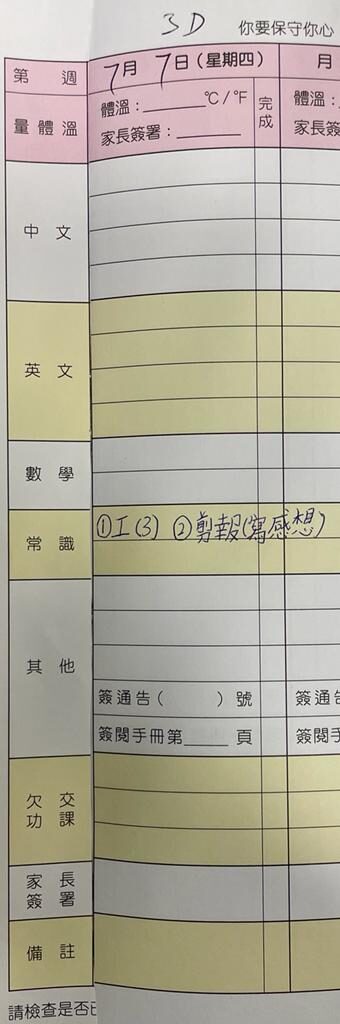 3D 你要保守你心
第 週 7月 7日(星期四) 月
量體溫 體溫：______°C/°F 完成 體溫：
家長簽署：______ 家長簽
中文
英文
數學
常識 ①工(3) ②剪報(寫感想)
其他
簽通告( )號 簽通告
簽閱手冊第____頁 簽閱手
欠交功課
家長簽署
備註
請檢查是否已